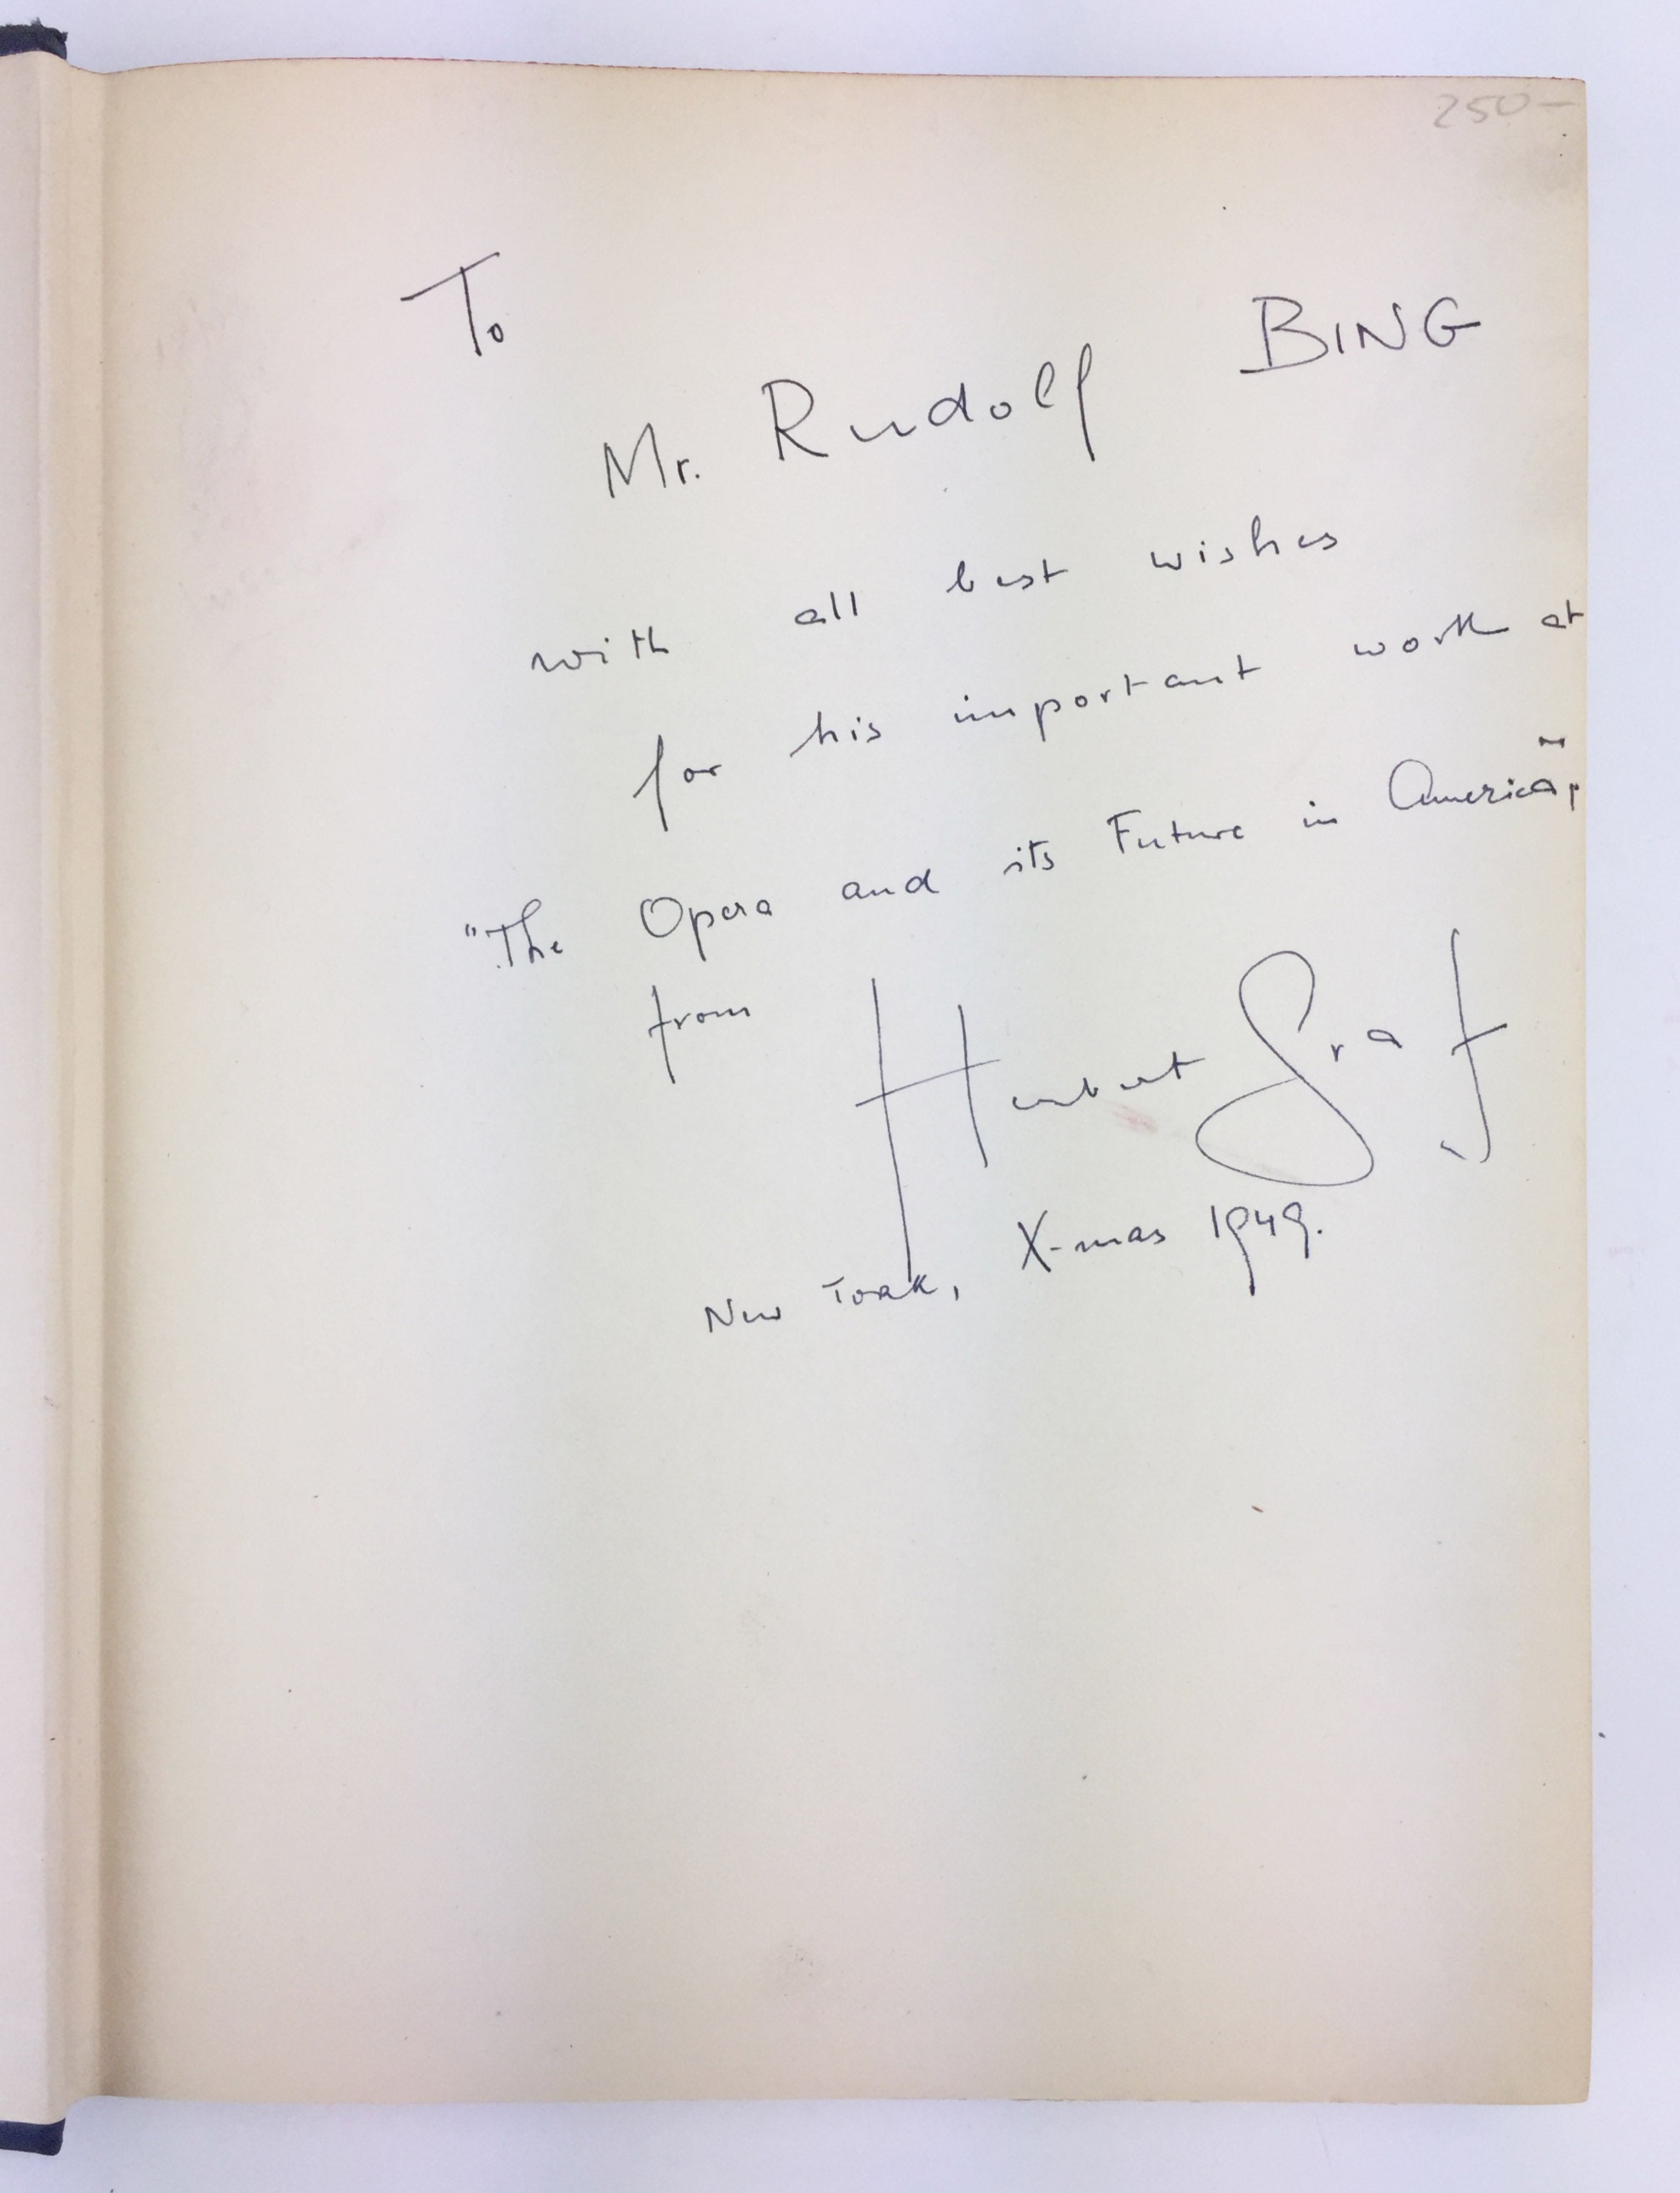 250-
To
Mr. Rudolf BING
with all best wishes
for his important work at
"The Opera and its Future in America",
from Herbert Graf
New York, X-mas 1949.